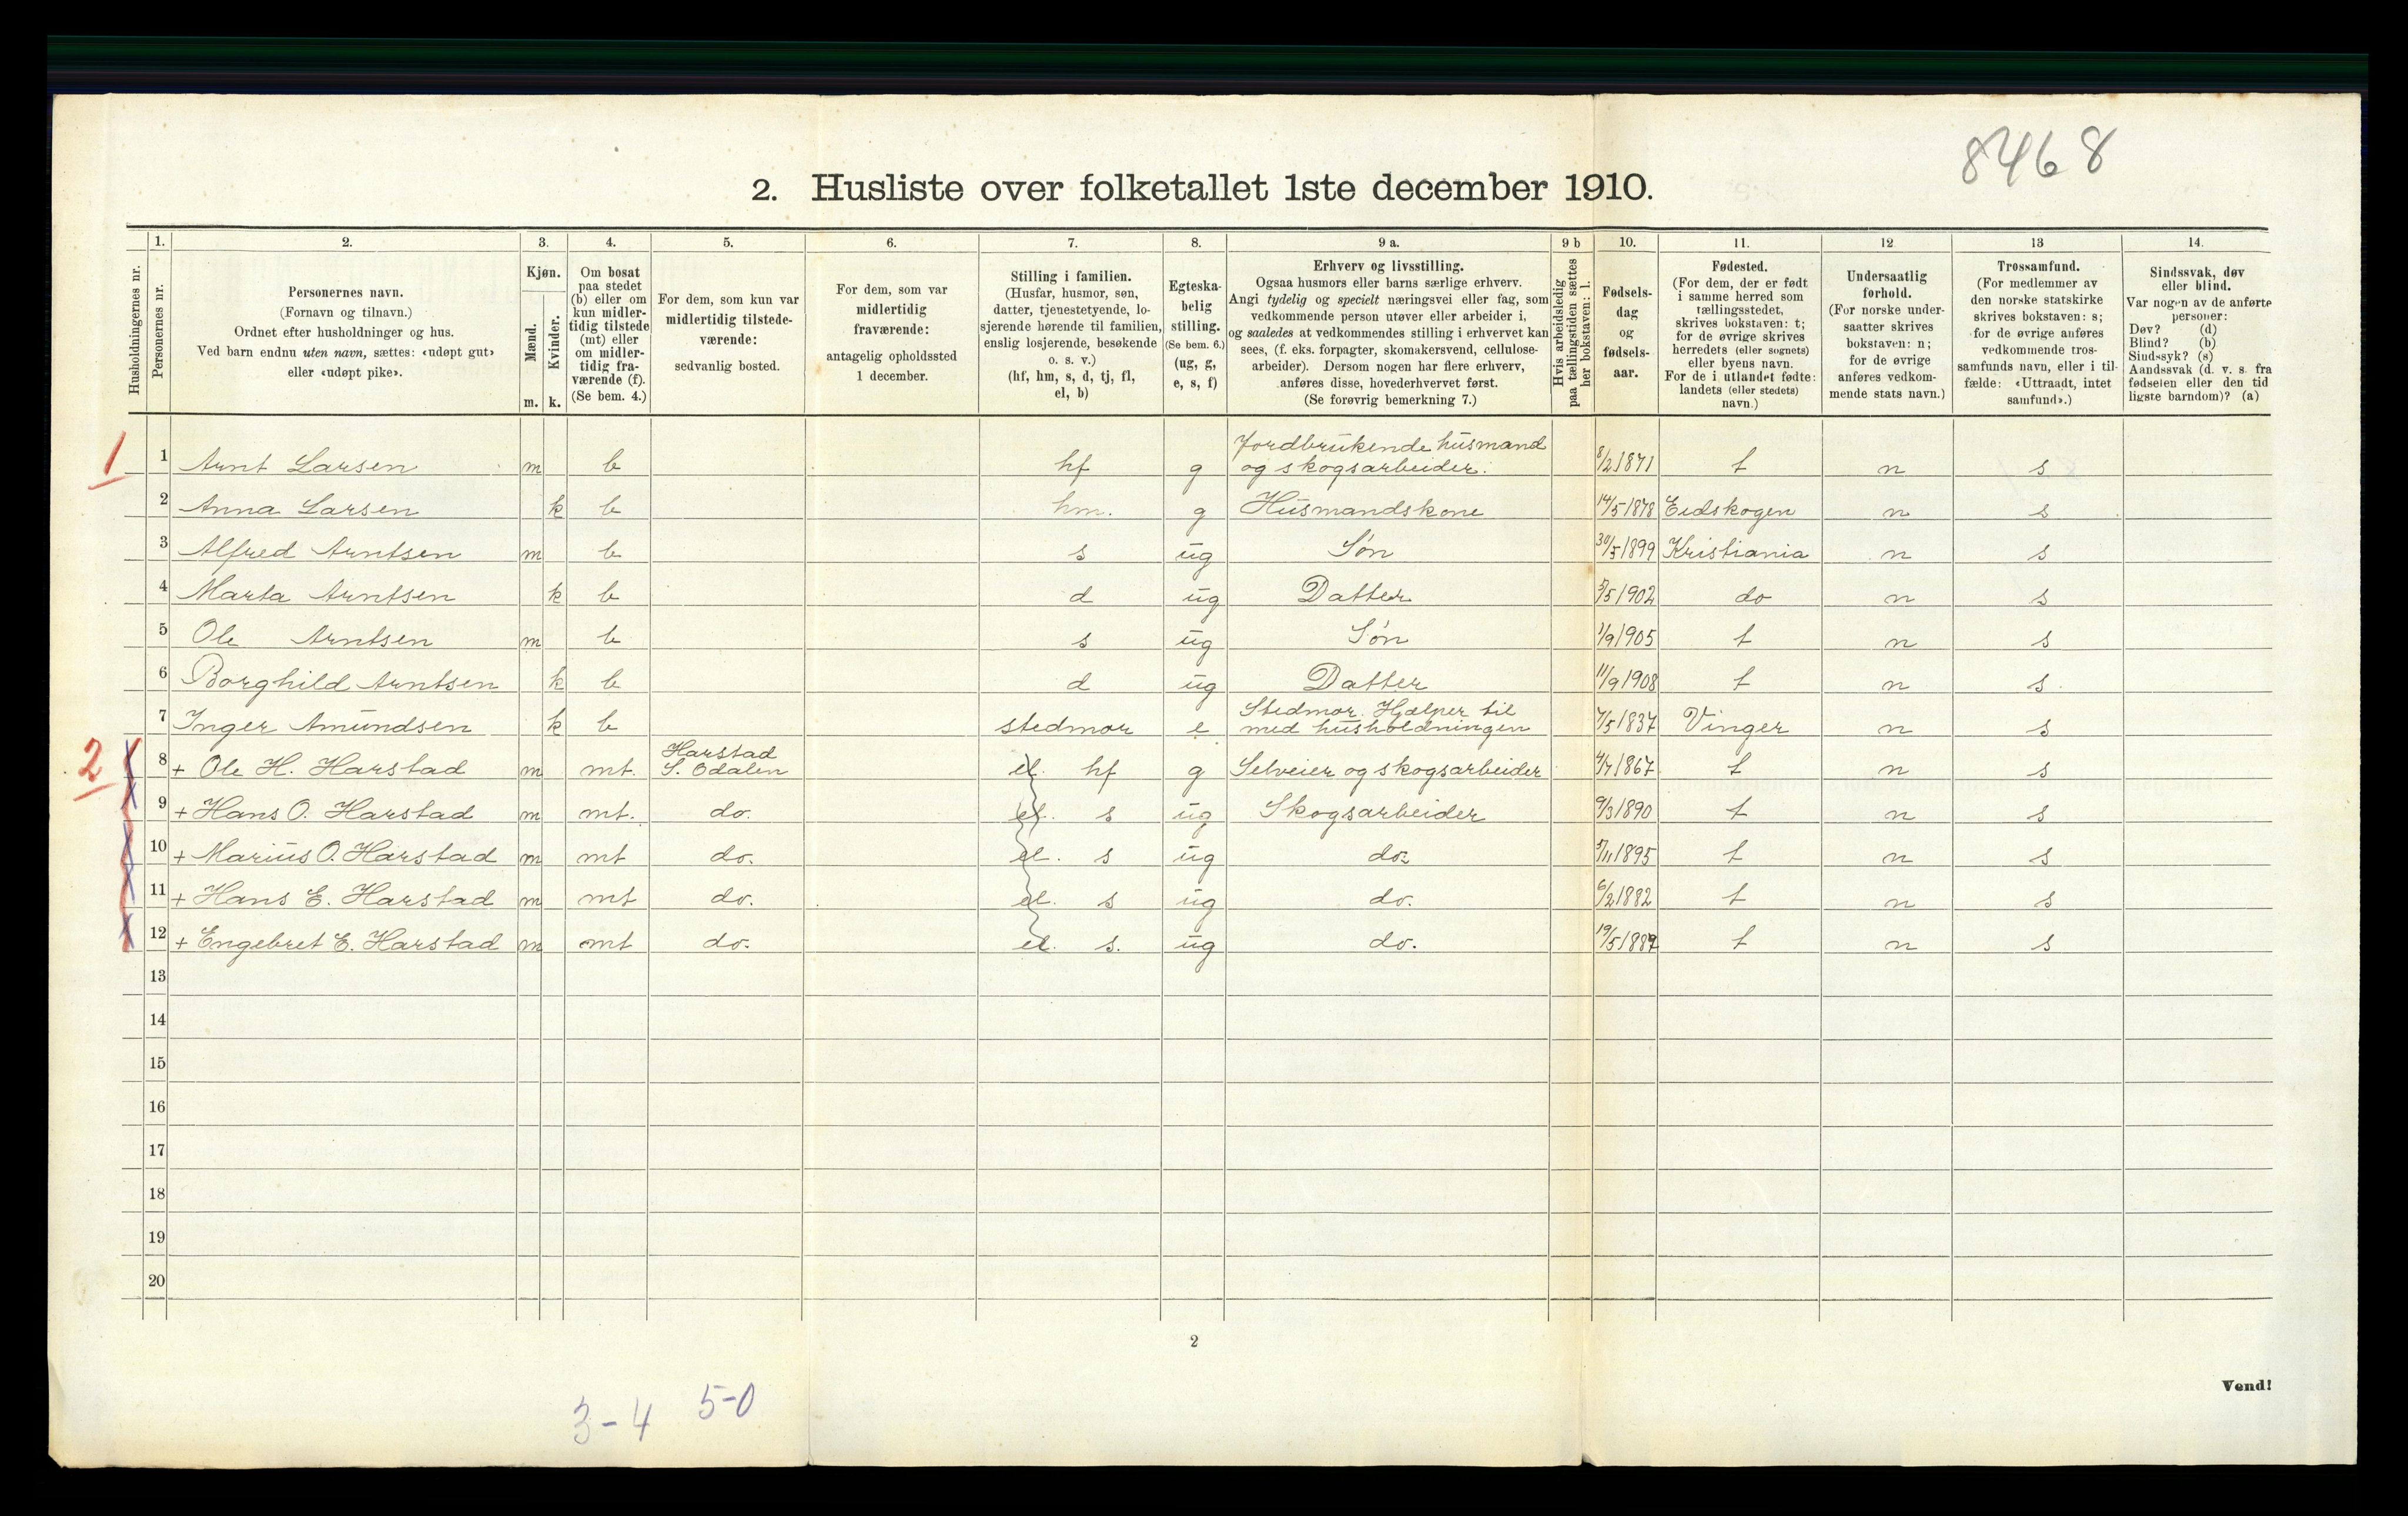 8468
2. Husliste over folketallet 1ste december 1910.
Husholdningernes nr.
1.
Personernes nr.
2.
Personernes navn.
(Fornavn og tilnavn.)
Ordnet efter husholdninger og hus.
Ved barn endnu uten navn, sættes: «udøpt gut»
eller «udøpt pike».
3.
Kjøn.
Mænd.
Kvinder.
m. k.
4.
Om bosat
paa stedet
(b) eller om
kun midler-
tidig tilstede
(mt) eller
om midler-
tidig fra-
værende (f).
(Se bem. 4.)
5.
For dem, som kun var
midlertidig tilstede-
værende:
sedvanlig bosted.
6.
For dem, som var
midlertidig
fraværende:
antagelig opholdssted
1 december.
7.
Stilling i familien.
(Husfar, husmor, søn,
datter, tjenestetyende, lo-
sjerende hørende til familien,
enslig losjerende, besøkende
o. s. v.)
(hf, hm, s, d, tj, fl,
el, b)
8.
Egteska-
belig
stilling.
(Se bem. 6.)
(ug, g,
e, s, f)
9 a.
Erhverv og livsstilling.
Ogsaa husmors eller barns særlige erhverv.
Angi tydelig og specielt næringsvei eller fag, som
vedkommende person utøver eller arbeider i,
og saaledes at vedkommendes stilling i erhvervet kan
sees, (f. eks. forpagter, skomakersvend, cellulose-
arbeider). Dersom nogen har flere erhverv,
anføres disse, hovederhvervet først.
(Se forøvrig bemerkning 7.)
9 b
Hvis arbeidsledig
paa tællingstiden sættes
her bokstaven: l.
10.
Fødsels-
dag
og
fødsels-
aar.
11.
Fødested.
(For dem, der er født
i samme herred som
tællingsstedet,
skrives bokstaven: t;
for de øvrige skrives
herredets (eller sognets)
eller byens navn.
For de i utlandet fødte:
landets (eller stedets)
navn.)
12
Undersaatlig
forhold.
(For norske under-
saatter skrives
bokstaven: n;
for de øvrige
anføres vedkom-
mende stats navn.)
13
Trossamfund.
(For medlemmer av
den norske statskirke
skrives bokstaven: s;
for de øvrige anføres
vedkommende tros-
samfunds navn, eller i til-
fælde: «Uttraadt, intet
samfund».)
14.
Sindssvak, døv
eller blind.
Var nogen av de anførte
personer:
Døv? (d)
Blind? (b)
Sindssyk? (s)
Aandssvak (d. v. s. fra
fødselen eller den tid
ligste barndom)? (a)
1 1 Arnt Larsen m b hf g Jordbrukende husmand og skogsarbeider. 8/2 1871 t n s
2 Anna Larsen k b hm. g Husmandskone 14/5 1878 Eidskogen n s
3 Alfred Arntsen m b s ug Søn 30/5 1899 Kristiania n s
4 Marta Arntsen k b d ug Datter 5/5 1902 do n s
5 Ole Arntsen m b s ug Søn 1/9 1905 t n s
6 Borghild Arntsen k b d ug Datter 11/9 1908 t n s
7 Inger Amundsen k b stedmor e Stedmor. Hjælper til med husholdningen 7/5 1837 Vinger n s
2 8 + Ole H. Harstad m mt. Harstad S. Odalen el. hf g Selveier og skogsarbeider 4/7 1867 t n s
9 + Hans O. Harstad m mt. do. el. s ug Skogsarbeider 9/3 1890 t n s
10 + Marius O. Harstad m mt do. el. s ug do. 5/11 1895 t n s
11 + Hans E. Harstad m mt do. el. s ug do. 6/2 1882 t n s
12 + Engebret E. Harstad m mt do. el. s. ug do. 19/5 1889 t n s
13
14
15
16
17
18
19
20
2
Vend!
3-4 5-0